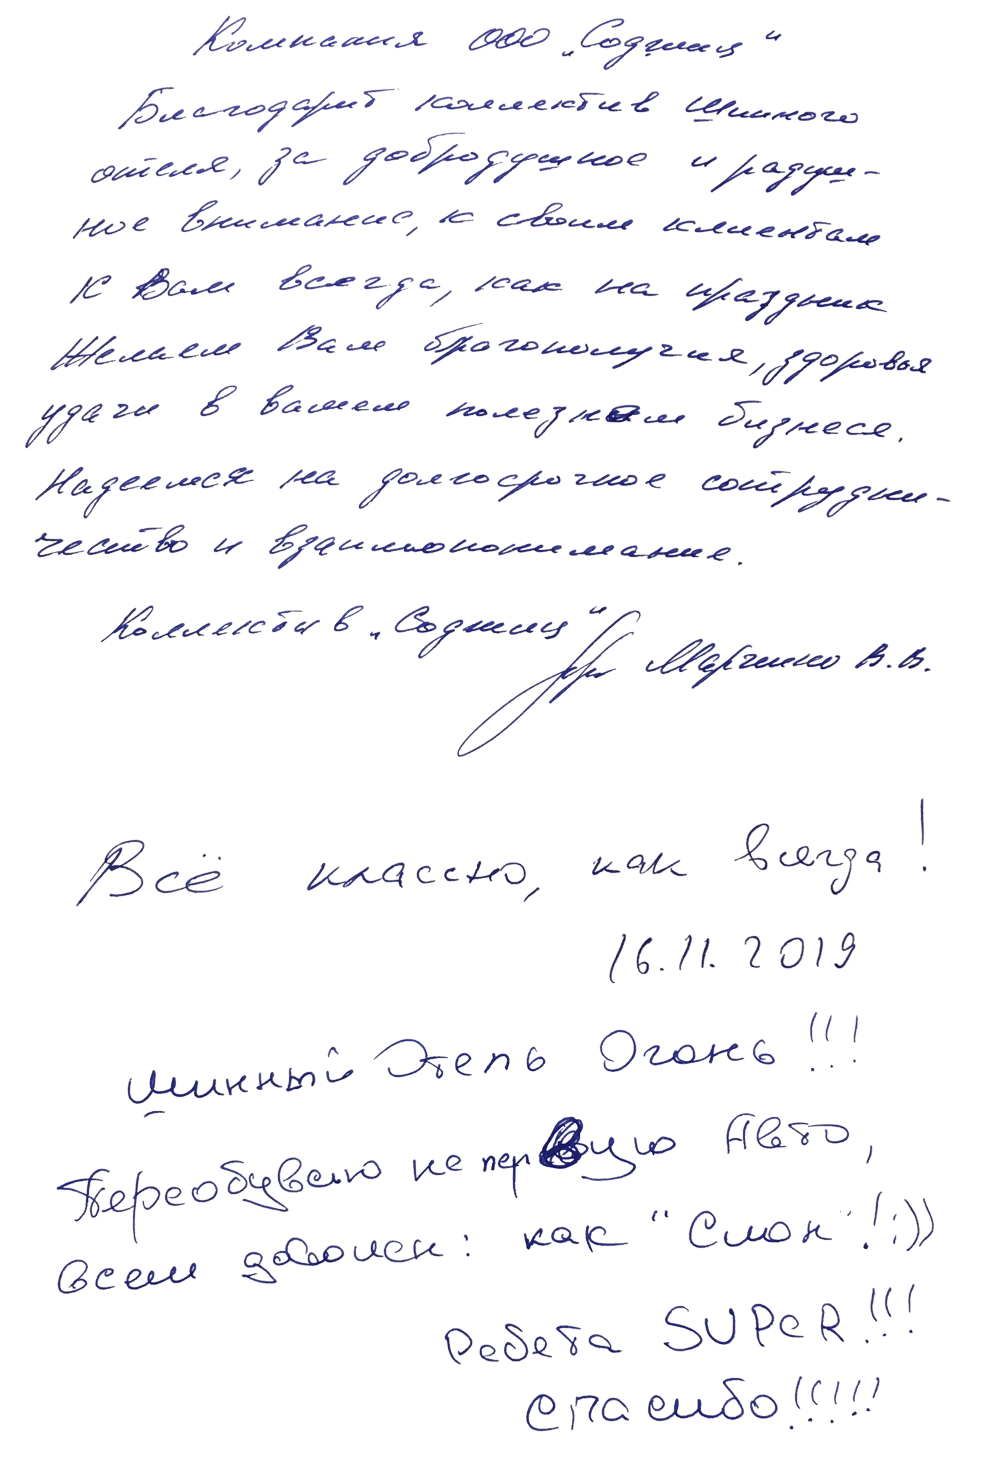 Компания ООО „Соджиц"
Благодарит коллектив Шинного
отеля, за добродушное и радуш-
ное внимание, к своим клиентам
К Вам всегда, как на праздник
Желаем Вам благополучия, здоровья
удачи в вашем полезном бизнесе.
Надеемся на долгосрочное сотрудни-
чество и взаимопонимание.
Коллектив „Соджиц"
Марченко В.В.
Всё классно, как всегда!
16.11.2019
Шинный Отель Огонь!!!
Переобуваю не первую Авто,
всем доволен: как "Слон"!:))
Ребята SUPER!!!
Спасибо!!!!!